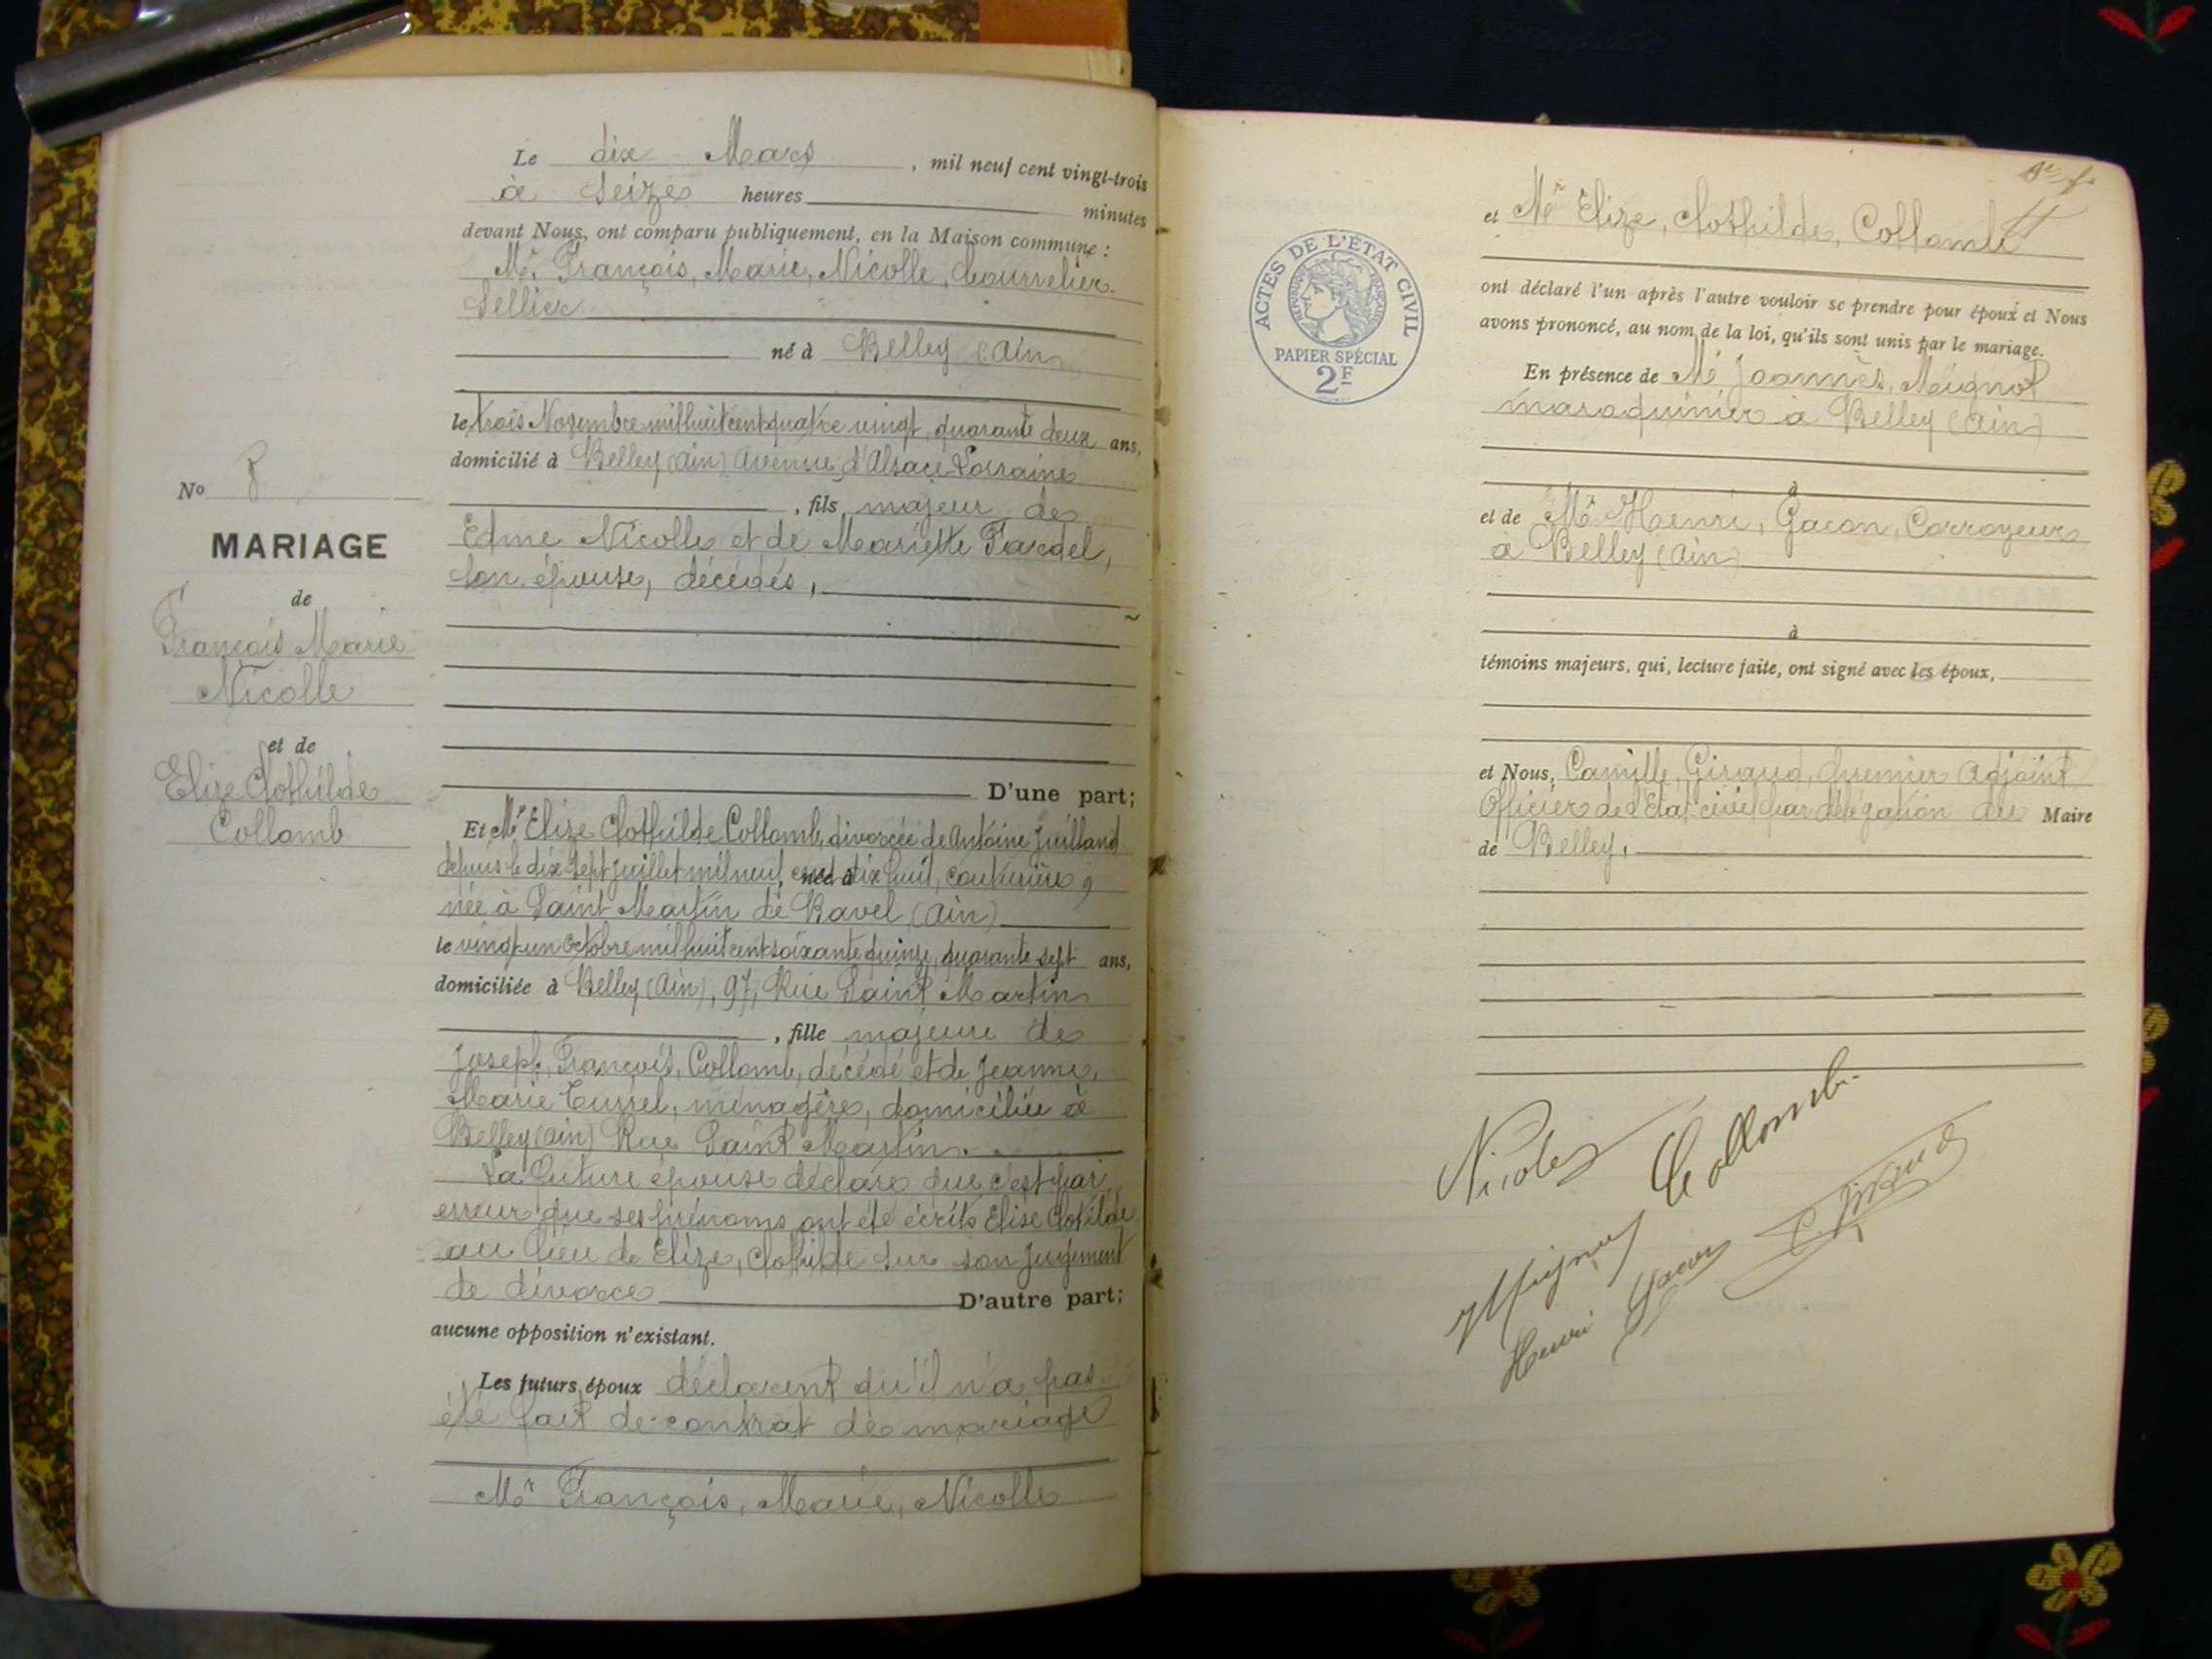 Le dix Mars , mil neuf cent vingt-trois
à seize heures minutes
devant Nous, ont comparu publiquement, en la Maison commune :
Mr François, Marie, Nicolle, bourrelier
Sellier
né à Belley (Ain)
le trois Novembre mil huit cent quatre vingt, quarante deux ans,
domicilié à Belley (Ain) Avenue d'Alsace-Lorraine
, fils majeur de
Edme Nicolle et de Mariette Tardel,
son épouse, décédés,
D'une part;
Et Me Elize Clothilde Collomb, divorcée de Antoine Juilland
depuis le dix sept juillet mil neuf cent dix huit, couturière,
née à
née à Saint Martin de Bavel (Ain)
le vingt un Octobre mil huit cent soixante quinze, quarante sept ans,
domiciliée à Belley (Ain), 97, Rue Saint Martin
, fille majeure de
Joseph, François, Collomb, décédé et de Jeanne,
Marie ménagère, domiciliée à
Belley (Ain) Rue Saint Martin.
La future épouse déclare que c'est par
erreur que ses prénoms ont été écrits Elise Clotilde
au lieu de Elize, Clothilde sur son jugement
de divorce D'autre part;
aucune opposition n'existant.
Les futurs époux déclarent qu'il n'a pas
été fait de contrat de mariage
Mr François, Marie, Nicolle
No 8
MARIAGE
de
François Marie
Nicolle
et de
Elize Clothilde
Collomb
et Me Elize, Clothilde, Collomb
ACTES DE L'ÉTAT CIVIL
RÉPUBLIQUE FRANÇAISE
PAPIER SPÉCIAL
2F
ont déclaré l'un après l'autre vouloir se prendre pour époux et Nous
avons prononcé, au nom de la loi, qu'ils sont unis par le mariage.
En présence de Mr Joannès, Meignot
maroquinier à Belley (Ain)
à
et de Mr Henri, Gacon, Corroyeur
à Belley (Ain)
à
témoins majeurs, qui, lecture faite, ont signé avec les époux,
et Nous, Camille, Giraud, premier Adjoint
Officier de l'Etat civil par délégation du Maire
de Belley,
Nicolle
Collomb
Henri Gacon
C. Giraud